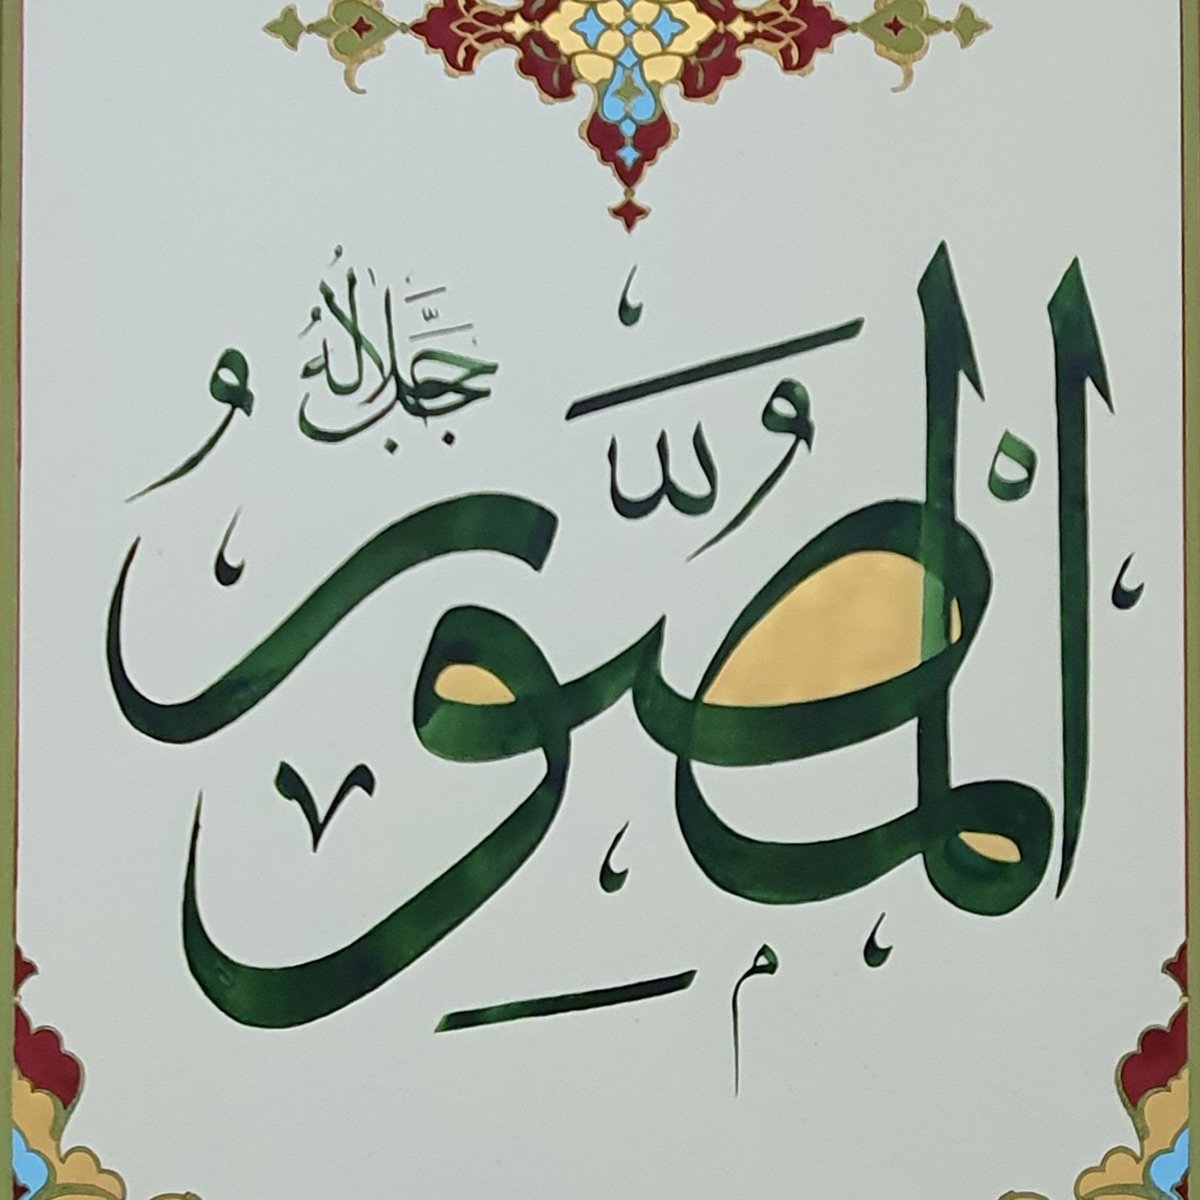 الْمُصَوِّرُ
جَلَّ جَلَالُهُ